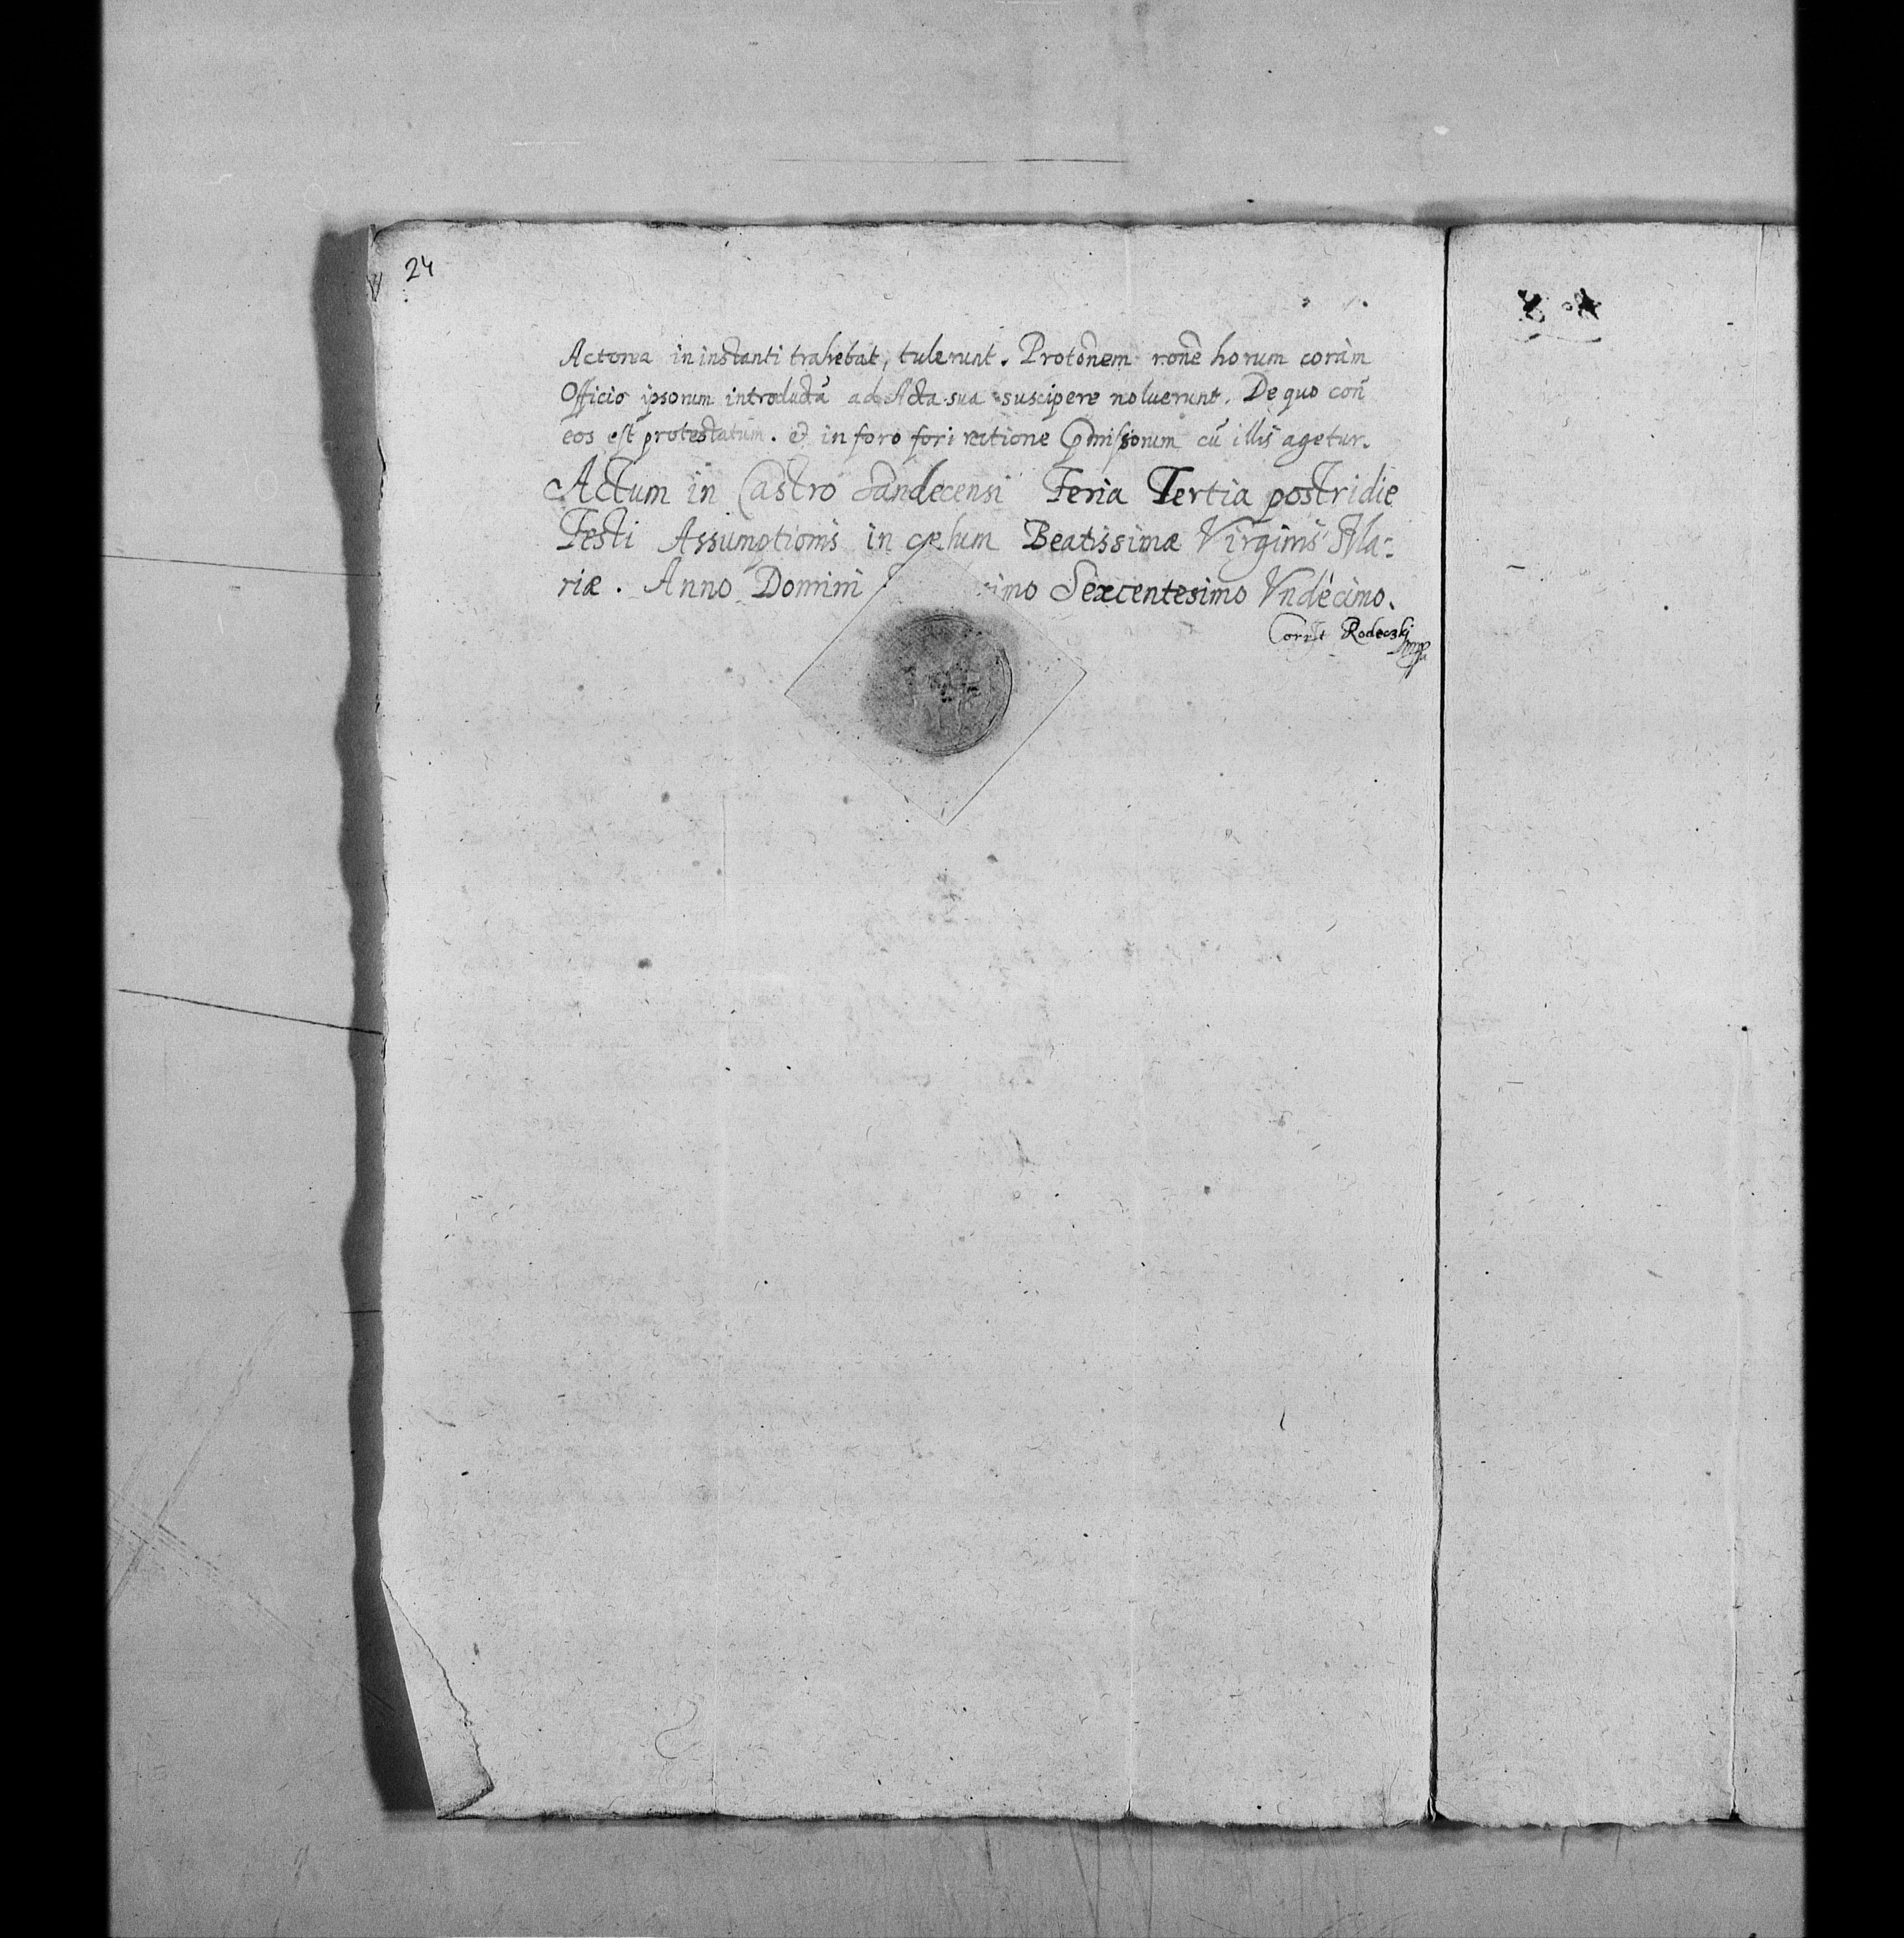 24
Actorea in instanti trahebat, tulerunt. Protõnem rõne horum coràm
Officio ipsorum introductã ad Acta sua suscipere noluerunt. De quo con̄
eos est protestatum. & in foro fori ratione p̄missorum cũ illis agetur.
Actum in Castro Sandecensi Feria Tertia postridie
Festi Assumptionis in cælum Beatissimæ Virginis Ma-
riæ. Anno Domini simo Sexcentesimo Vndécimo.
Corr̄t Rodeczki mpp